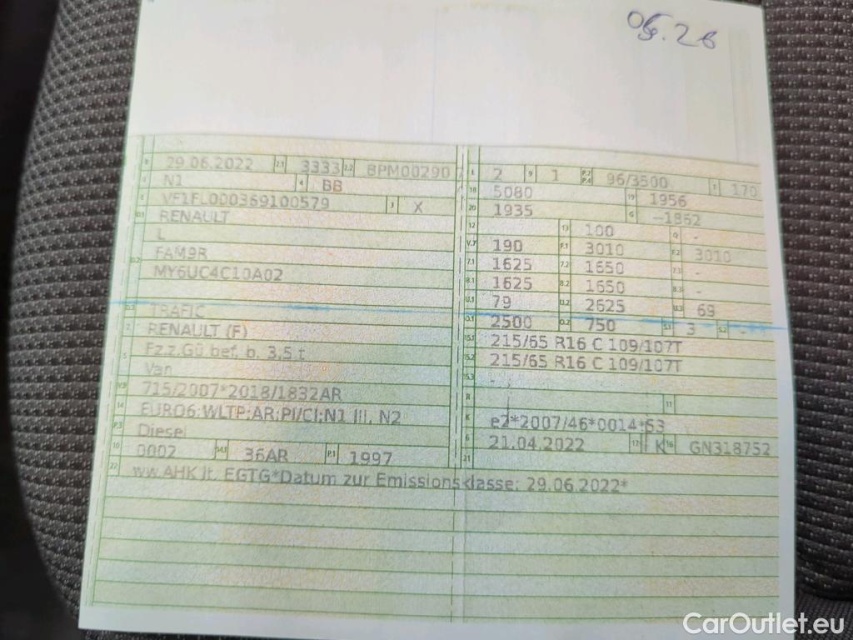 05.26
29.06.2022 3333 BPM00290 2 1 96/3500 170
N1 BB 5080 1956
VF1FL000369100579 X 1935 -1962
RENAULT 100 -
L 190 3010 3010
FAM9R 1625 1650 -
MY6UC4C10A02 1625 1650 -
79 2625 69
TRAFIC 2500 750 3 -
RENAULT (F) 215/65 R16 C 109/107T
Fz.z.Gü.bef. b. 3,5 t 215/65 R16 C 109/107T
Van -
715/2007*2018/1832AR
EURO6;WLTP;AR;PI/CI;N1 III, N2 e2*2007/46*0014*63
Diesel 21.04.2022 K GN318752
0002 36AR 1997
ww.AHK lt. EGTG*Datum zur Emissionsklasse: 29.06.2022*
CarOutlet.eu